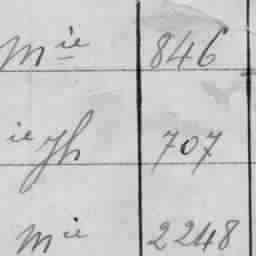 mie 846
ie yh 707
mie 2248